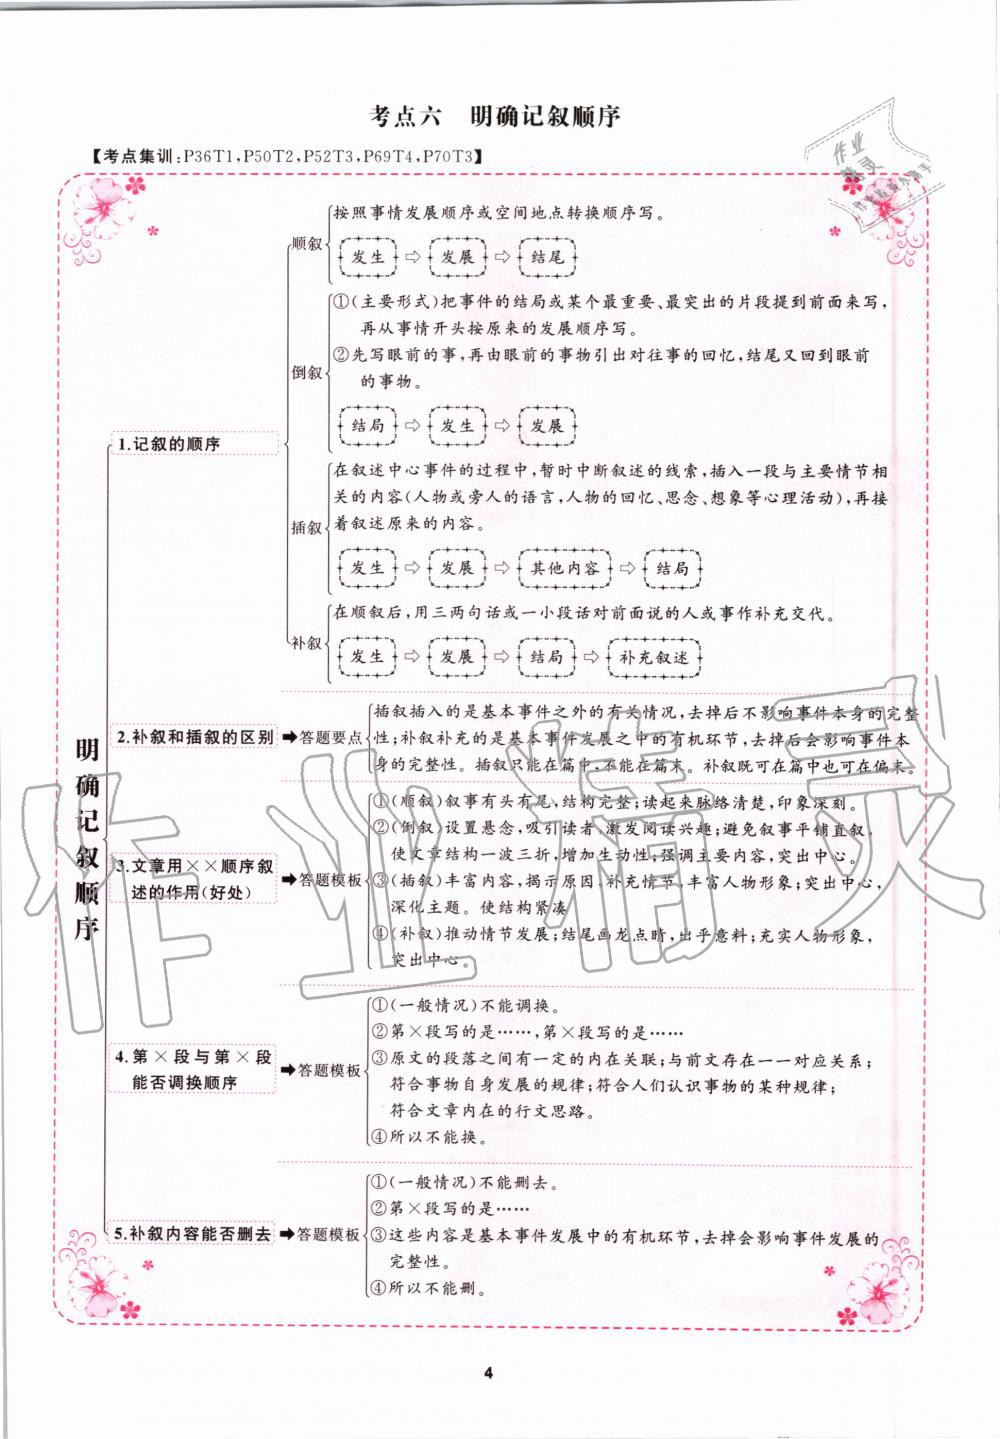 考点六　明确记叙顺序
【考点集训:P36T1,P50T2,P52T3,P69T4,P70T3】
明确记叙顺序
1.记叙的顺序
顺叙
按照事情发展顺序或空间地点转换顺序写。
发生⇨发展⇨结尾
倒叙
①(主要形式)把事件的结局或某个最重要、最突出的片段提到前面来写,
再从事情开头按原来的发展顺序写。
②先写眼前的事,再由眼前的事物引出对往事的回忆,结尾又回到眼前
的事物。
结局⇨发生⇨发展
插叙
在叙述中心事件的过程中,暂时中断叙述的线索,插入一段与主要情节相
关的内容(人物或旁人的语言,人物的回忆、思念、想象等心理活动),再接
着叙述原来的内容。
发生⇨发展⇨其他内容⇨结局
补叙
在顺叙后,用三两句话或一小段话对前面说的人或事作补充交代。
发生⇨发展⇨结局⇨补充叙述
2.补叙和插叙的区别
➡答题要点
插叙插入的是基本事件之外的有关情况,去掉后不影响事件本身的完整
性;补叙补充的是基本事件发展之中的有机环节,去掉后会影响事件本
身的完整性。插叙只能在篇中,不能在篇末。补叙既可在篇中也可在偏末。
3.文章用××顺序叙
述的作用(好处)
➡答题模板
①(顺叙)叙事有头有尾,结构完整;读起来脉络清楚,印象深刻。
②(倒叙)设置悬念,吸引读者、激发阅读兴趣;避免叙事平铺直叙,
使文章结构一波三折,增加生动性;强调主要内容,突出中心。
③(插叙)丰富内容,揭示原因、补充情节、丰富人物形象;突出中心,
深化主题。使结构紧凑
④(补叙)推动情节发展;结尾画龙点睛,出乎意料;充实人物形象,
突出中心。
4.第×段与第×段
能否调换顺序
➡答题模板
①(一般情况)不能调换。
②第×段写的是……,第×段写的是……
③原文的段落之间有一定的内在关联;与前文存在一一对应关系;
符合事物自身发展的规律;符合人们认识事物的某种规律;
符合文章内在的行文思路。
④所以不能换。
5.补叙内容能否删去
➡答题模板
①(一般情况)不能删去。
②第×段写的是……
③这些内容是基本事件发展中的有机环节,去掉会影响事件发展的
完整性。
④所以不能删。
4
作业精灵